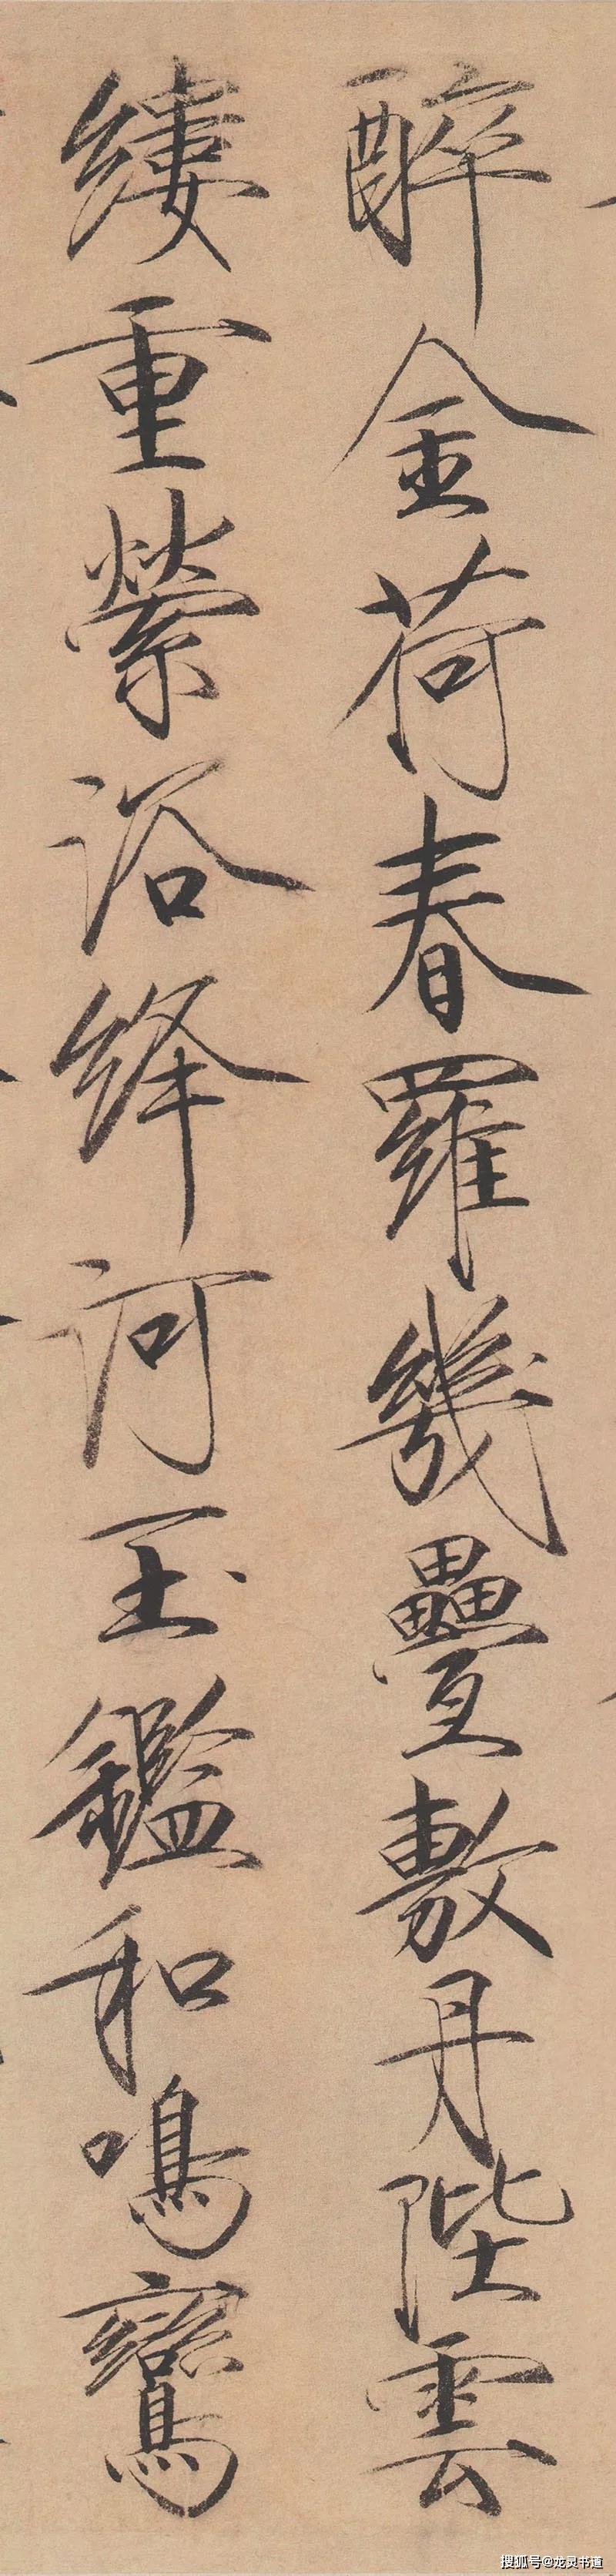 醉金荷春羅幾疊敷丹陛雲
縷重縈浴絳河玉鑑和鳴鸞
搜狐号@龙灵书道